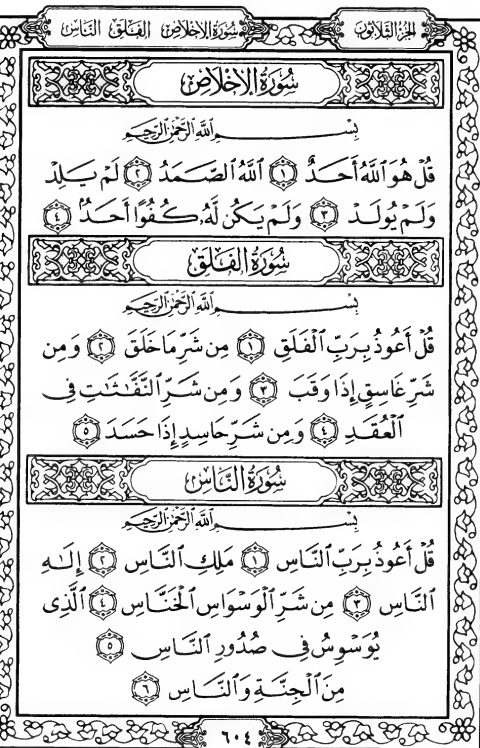 الجزء الثلاثون
سورة الإخلاص الفلق الناس
سُورَةُ الإِخْلَاصِ
بِسْمِ ٱللَّهِ ٱلرَّحْمَٰنِ ٱلرَّحِيمِ
قُلْ هُوَ ٱللَّهُ أَحَدٌ ١ ٱللَّهُ ٱلصَّمَدُ ٢ لَمْ يَلِدْ
وَلَمْ يُولَدْ ٣ وَلَمْ يَكُن لَّهُۥ كُفُوًا أَحَدٌۢ ٤
سُورَةُ الفَلَقِ
بِسْمِ ٱللَّهِ ٱلرَّحْمَٰنِ ٱلرَّحِيمِ
قُلْ أَعُوذُ بِرَبِّ ٱلْفَلَقِ ١ مِن شَرِّ مَا خَلَقَ ٢ وَمِن
شَرِّ غَاسِقٍ إِذَا وَقَبَ ٣ وَمِن شَرِّ ٱلنَّفَّٰثَٰتِ فِى
ٱلْعُقَدِ ٤ وَمِن شَرِّ حَاسِدٍ إِذَا حَسَدَ ٥
سُورَةُ النَّاسِ
بِسْمِ ٱللَّهِ ٱلرَّحْمَٰنِ ٱلرَّحِيمِ
قُلْ أَعُوذُ بِرَبِّ ٱلنَّاسِ ١ مَلِكِ ٱلنَّاسِ ٢ إِلَٰهِ
ٱلنَّاسِ ٣ مِن شَرِّ ٱلْوَسْوَاسِ ٱلْخَنَّاسِ ٤ ٱلَّذِى
يُوَسْوِسُ فِى صُدُورِ ٱلنَّاسِ ٥
مِنَ ٱلْجِنَّةِ وَٱلنَّاسِ ٦
٦٠٤